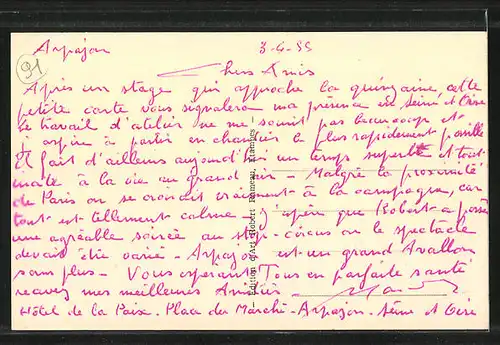 91
Arpajon 3-4-55
Chers Amis
Après un stage qui approche la quinzaine, cette
petite carte vous signalera ma présence en Seine et Oise
Le travail d'atelier ne me sourit pas beaucoup et
j'aspire à partir en chantier le plus rapidement possible
Il fait d'ailleurs aujourd'hui un temps superbe et tout
invite à la vie au grand air - Malgré la proximité
de Paris on se croirait vraiment à la campagne, car
tout est tellement calme. J'espère que Robert a passé
une agréable soirée au circus où le spectacle
devait être varié - Arpajon est un grand Avallon
sans plus - Vous espérant Tous en parfaite santé
recevez mes meilleures Amitiés
Hôtel de la Paix. Place du Marché - Arpajon. Seine et Oise
Edition d'Art Robert Rameau, Etampes